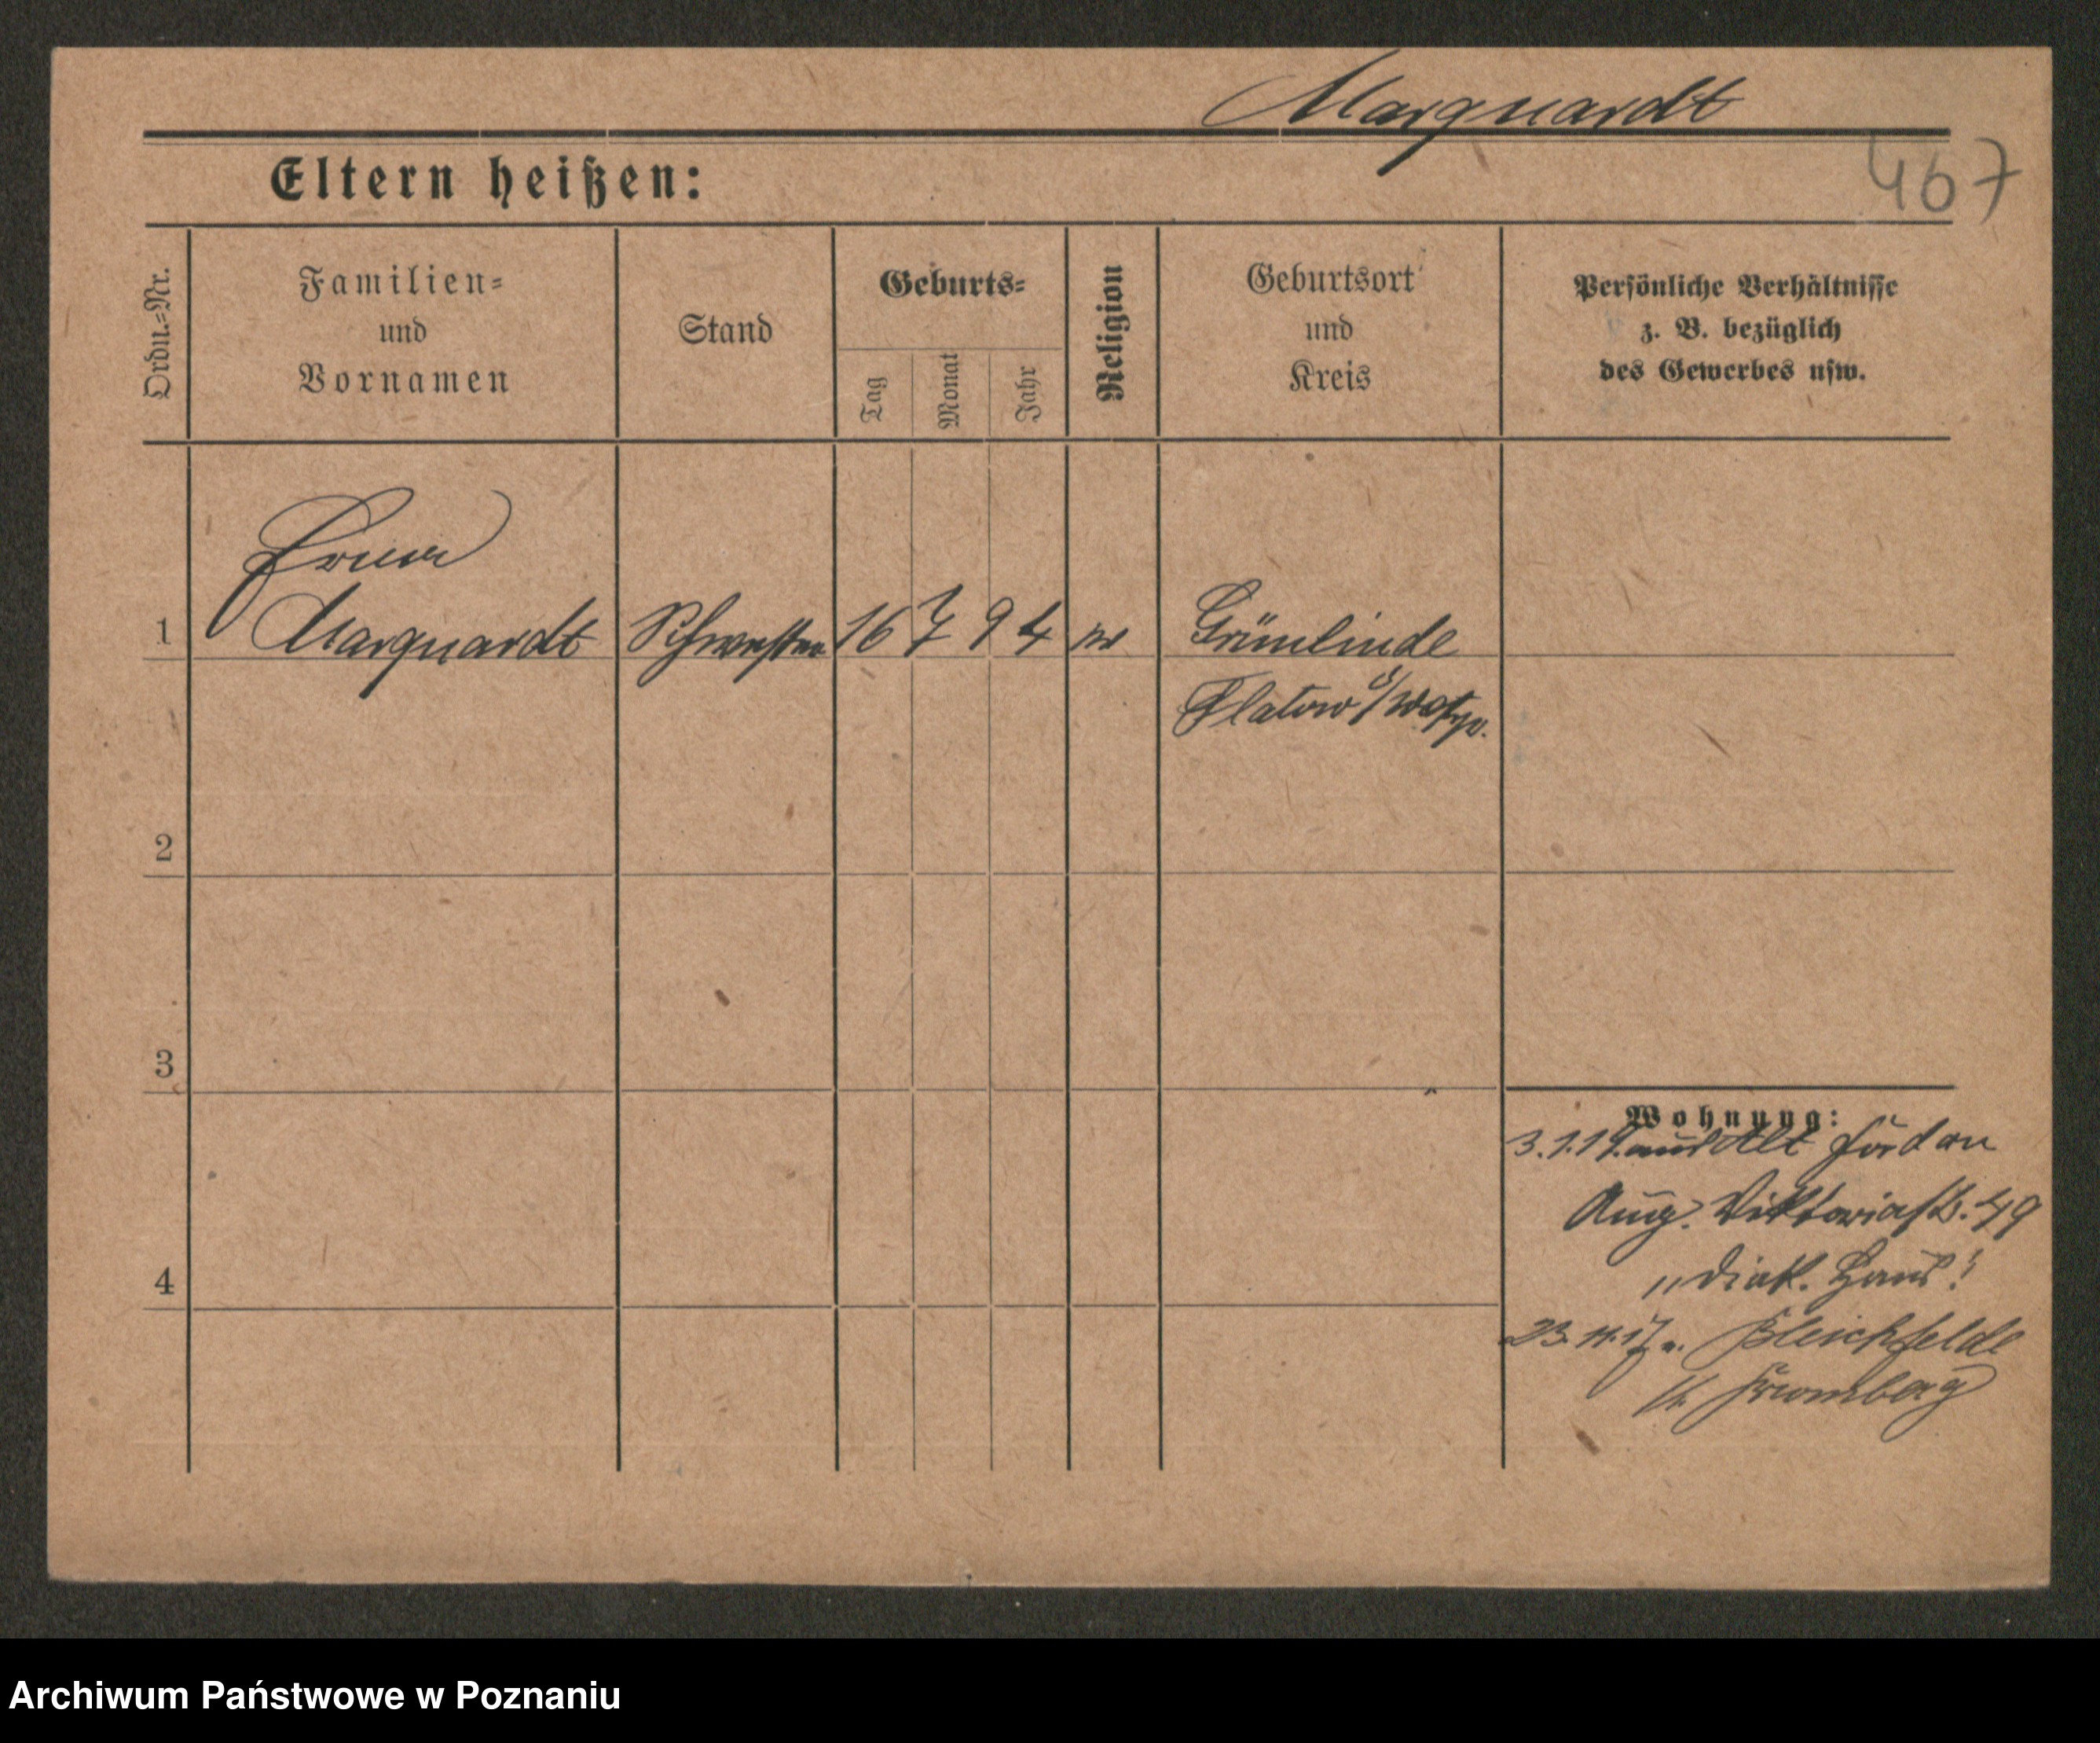 Marquardt
467
Eltern heißen:
Ordn.=Nr.
Familien=
und
Vornamen
Stand
Geburts=
Tag
Monat
Jahr
Religion
Geburtsort
und
Kreis
Persönliche Verhältnisse
z. B. bezüglich
des Gewerbes usw.
Erna
1 Marquardt Schwester 16 7 94 ev Grünlinde
Flatow /Westpr.
2
3
4
Wohnung:
3.1.19. aus Alt Jordan
Aug. Viktoriastr. 49
"Diak. Haus"
23. 11. 17 n. Bleichfelde
Kr. Bromberg
Archiwum Państwowe w Poznaniu